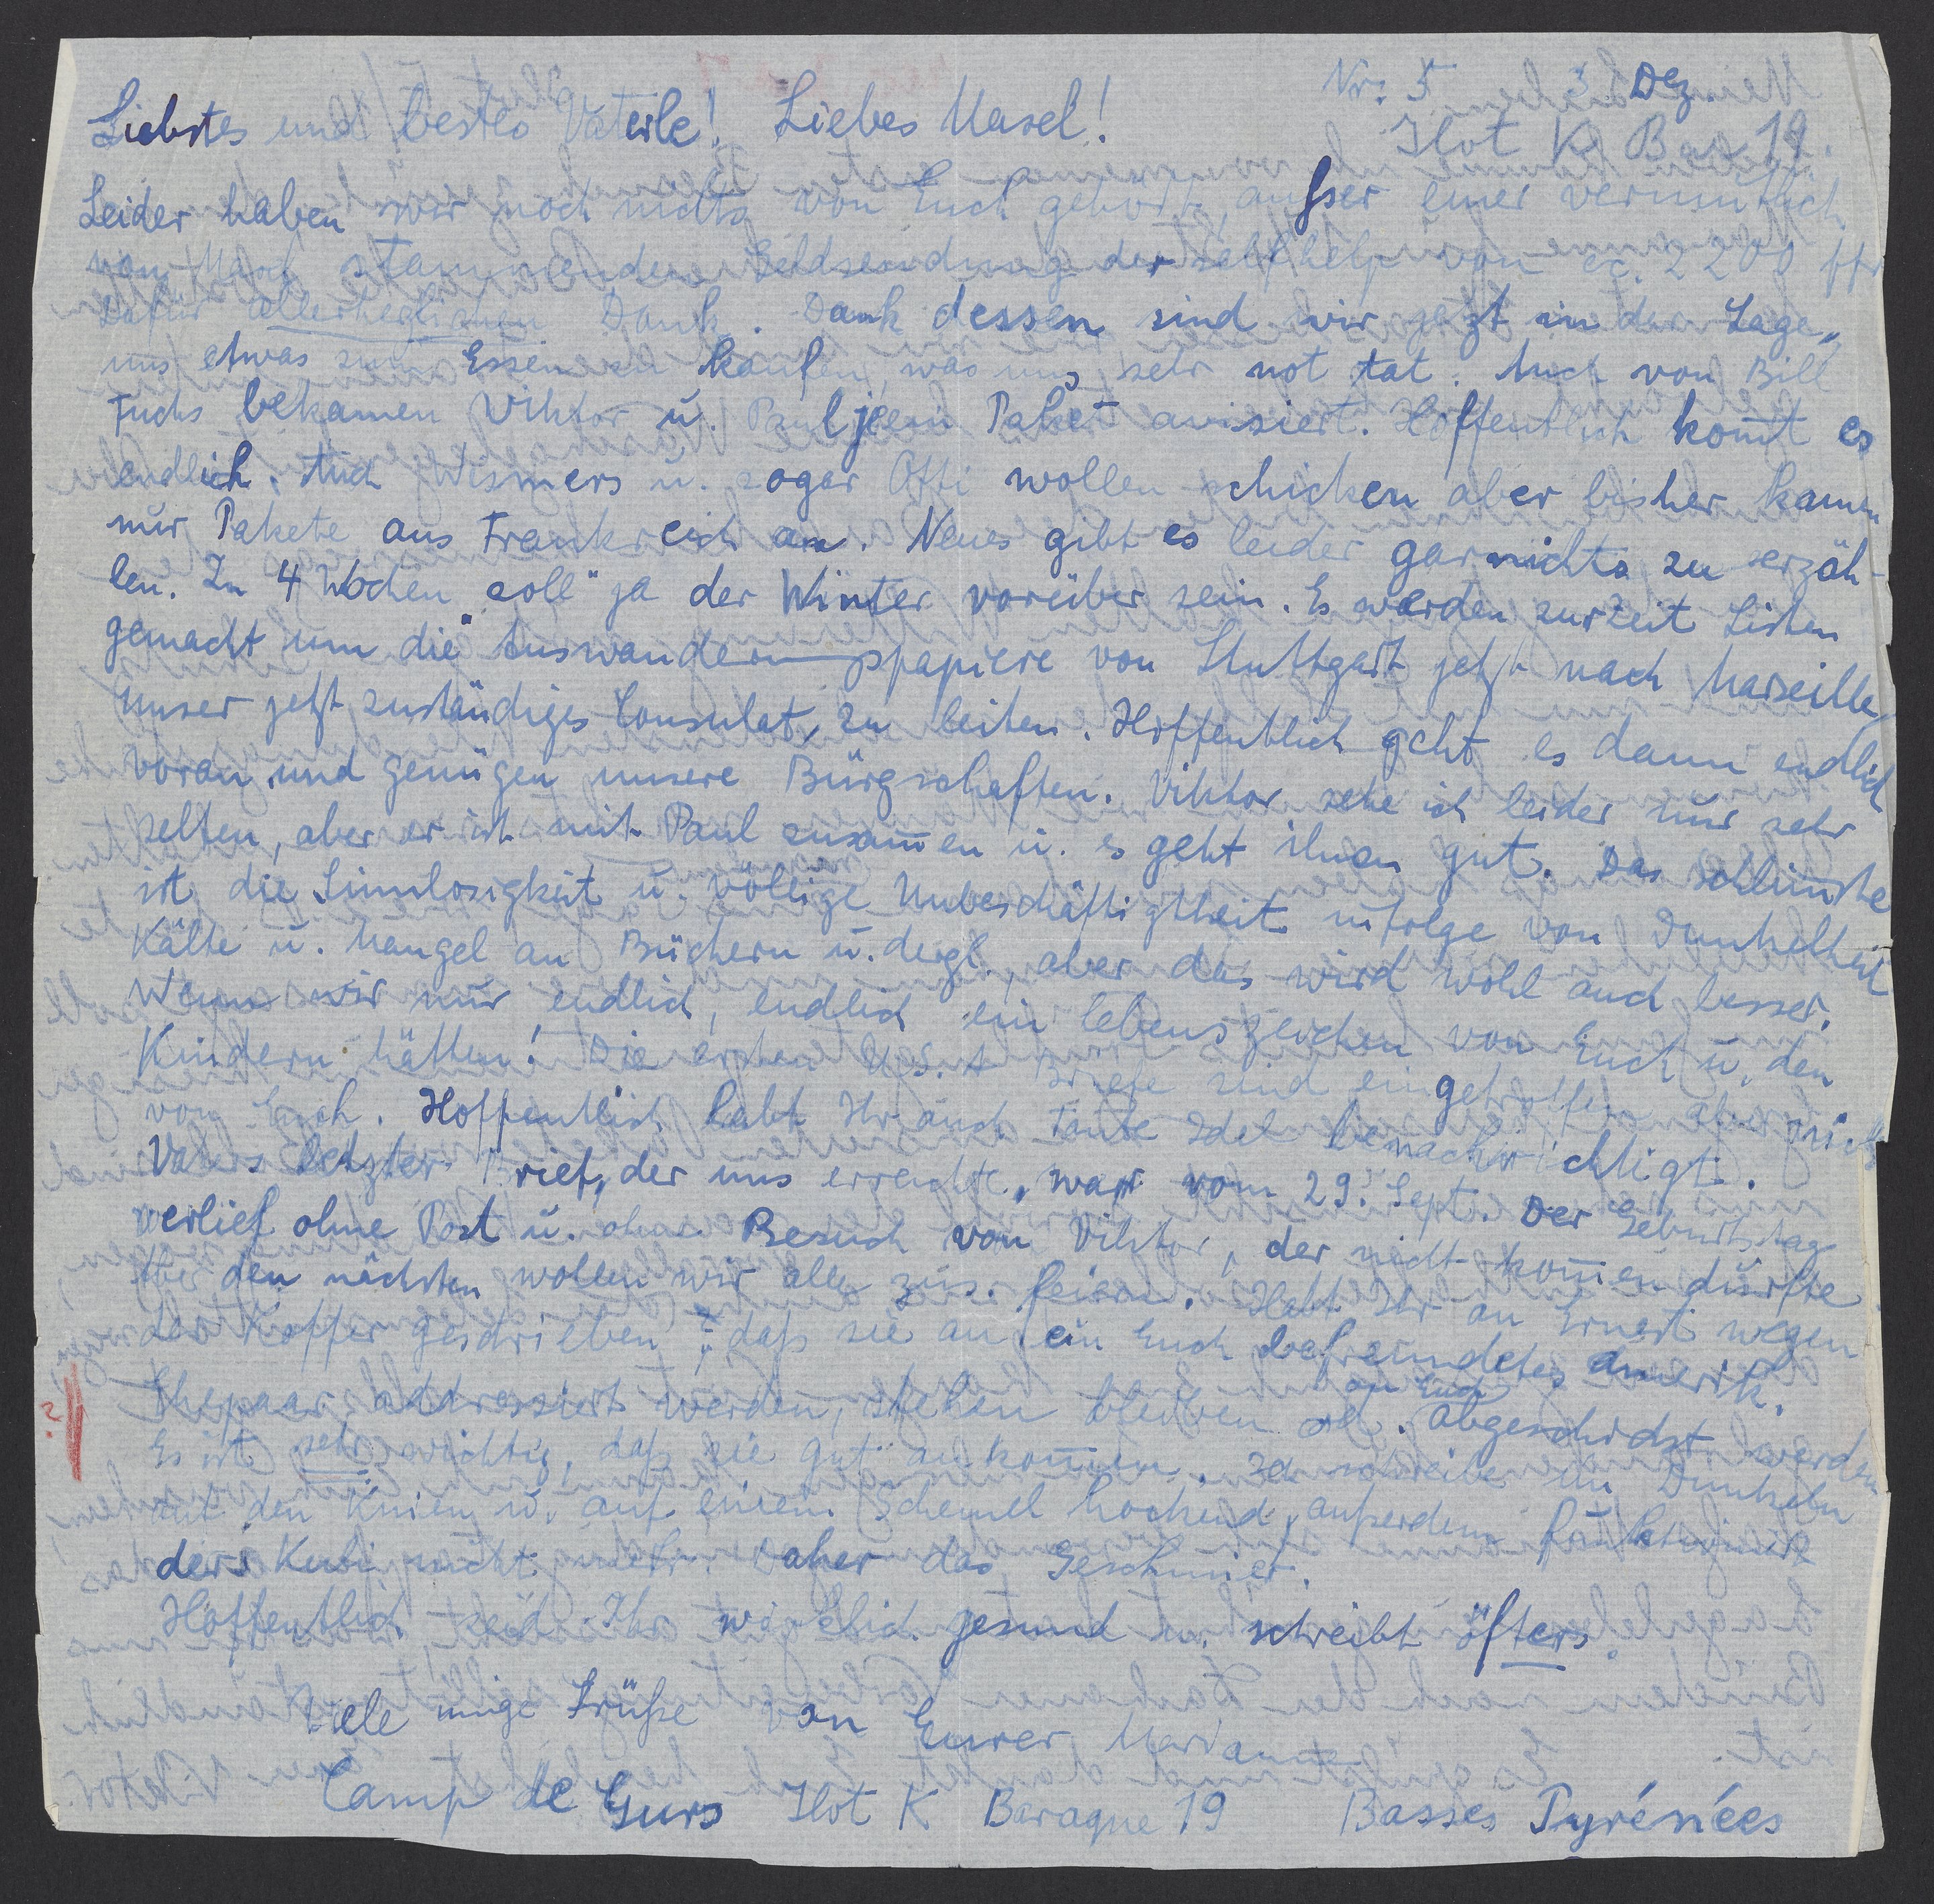 Nr. 5 3. Dez.
Liebstes und bestes Vaterle! Liebes Masel!
Ilot K Bar 19.
Leider haben wir noch nichts von Euch gehört, außser einer vermutlich
von Masel stammenden Geldsendung der Selfhelp von ca. 2200 ffr
Dafür allerherzlichen Dank. Dank dessen sind wir jetzt in der Lage,
uns etwas zum Essen zu kaufen, was uns sehr not tat. Auch von Bill
Fuchs bekamen Viktor u. Paul je ein Paket avisiert. Hoffentlich kom̄t es
endlich. Auch Wismers u. sogar Otti wollen schicken aber bisher kamen
nur Pakete aus Frankreich an. Neues gibt es leider garnichts zu erzäh-
len. In 4 Wochen „soll" ja der Winter vorüber sein. Es werden zurzeit Listen
gemacht um die Auswanderungspapiere von Stuttgart jetzt nach Marseille,
unser jetzt zuständiges Consulat, zu leiten. Hoffentlich geht es dann endlich
voran und genügen unsere Bürgschaften. Viktor sehe ich leider nur sehr
selten, aber er ist mit Paul zusam̄en u. es geht ihnen gut. Das Schlimmste
ist die Sinnlosigkeit u. völlige Unbeschäftigtheit infolge von Dunkelheit
Kälte u. Mangel an Büchern u. dergl., aber das wird wohl auch besser.
Wenn wir nur endlich, endlich ein Lebenszeichen von Euch u. den
Kindern hätten! Die ersten U.S.A Briefe sind eingetroffen aber nichts
von Euch. Hoffentlich habt Ihr auch Tante Idel benachrichtigt.
Vaters letzter Brief, der uns erreichte, war vom 29. Sept. Der Geburtstag
verlief ohne Post u. ohne Besuch von Viktor, der nicht kom̄en durfte
Aber den nächsten wollen wir alle zus. feiern. Habt Ihr an Ernest wegen
der Koffer geschrieben, daß sie an ein Euch befreundetes amerik.
Ehepaar addressiert werden, stehen bleiben od. an Euch abgeschickt werden
Es ist sehr wichtig, daß sie gut ankom̄en. Ich schreibe im Dunkeln
auf den Knien u. auf einem Schemel hockend, außerdem funktioniert
der Kuli nicht mehr. Daher das Geschmier.
Hoffentlich seid Ihr wirklich gesund u. schreibt öfters.
Viele innige Grüße von Eurer Marianne
Camp de Gurs Ilot K Baraque 19 Basses Pyrénées